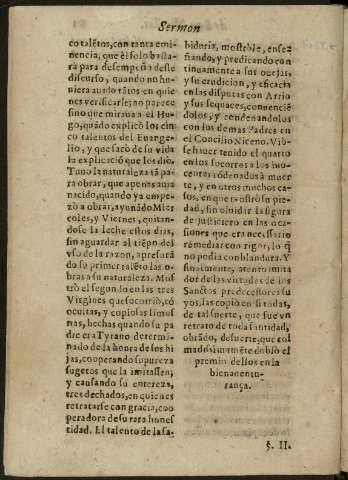 Sermon
co talẽtos, con tanta emi-
nencia, que èl solo basta-
ra para desempeño deste
discurso, quando no hu-
niera auido tãtos en quie-
nes verificarse; no parece
sino que miraua a el Hu-
go, quãdo explicò los cin-
co talentos del Euange-
lio, y que sacò de su vida
la explicaciõ que los diò.
Tuuo la naturaleza tã pa-
ra obrar, que apenas auia
nacido, quando ya empe-
zò a obrar, ayunãdo Mier-
coles, y Viernes, quitan-
dose la leche estos dias,
sin aguardar al tiẽpo del
vso de la razon, apresurã-
do su primer talẽto las o-
bras a su naturaleza. Mos-
trò el segundo en las tres
Virgines que socorriò, tã
ocultas, y copiosas limos-
nas, hechas quando su pa-
dre era Tyrano determi-
nado de la honra de los hi-
jas, cooperando su pureza
sugetos que la imitassen,
y causando su entereza,
tres dechados, en quienes
retratarse con gracia, coo-
peradora de su rara hones-
tidad. El talento de la sa-
bidaria, mostrble, ense-
ñando, y predicando con
tinuamente a sus ouejas,
y su erudicion, y eficacia
en las disputas con Arrio
y sus sequaces, conuenciè
dolos, y condenandolos
con los demas Padres en
el Concilio Niceno. Viò-
se hauer tenido el quarto
en los socorros a los ino-
centes cõdenados à muer
te, y en otros muchos ca-
sos, en que mostrò su pie-
dad, sin oluidar la figura
de justiciero en las oca-
siones que era necessario
remediar con rigor, lo q̃
no podia con blandura. Y
finalmente, atento imita-
dor de las virtudes de los
Sanctos predecessores su
yos, las copiò en si todas,
de tal suerte, que fue vn
retrato de toda santidad,
obrãdo, de suerte, que col
madissimamẽte dobló el
premio dellos en la
bienauentu-
rança.
§. II.